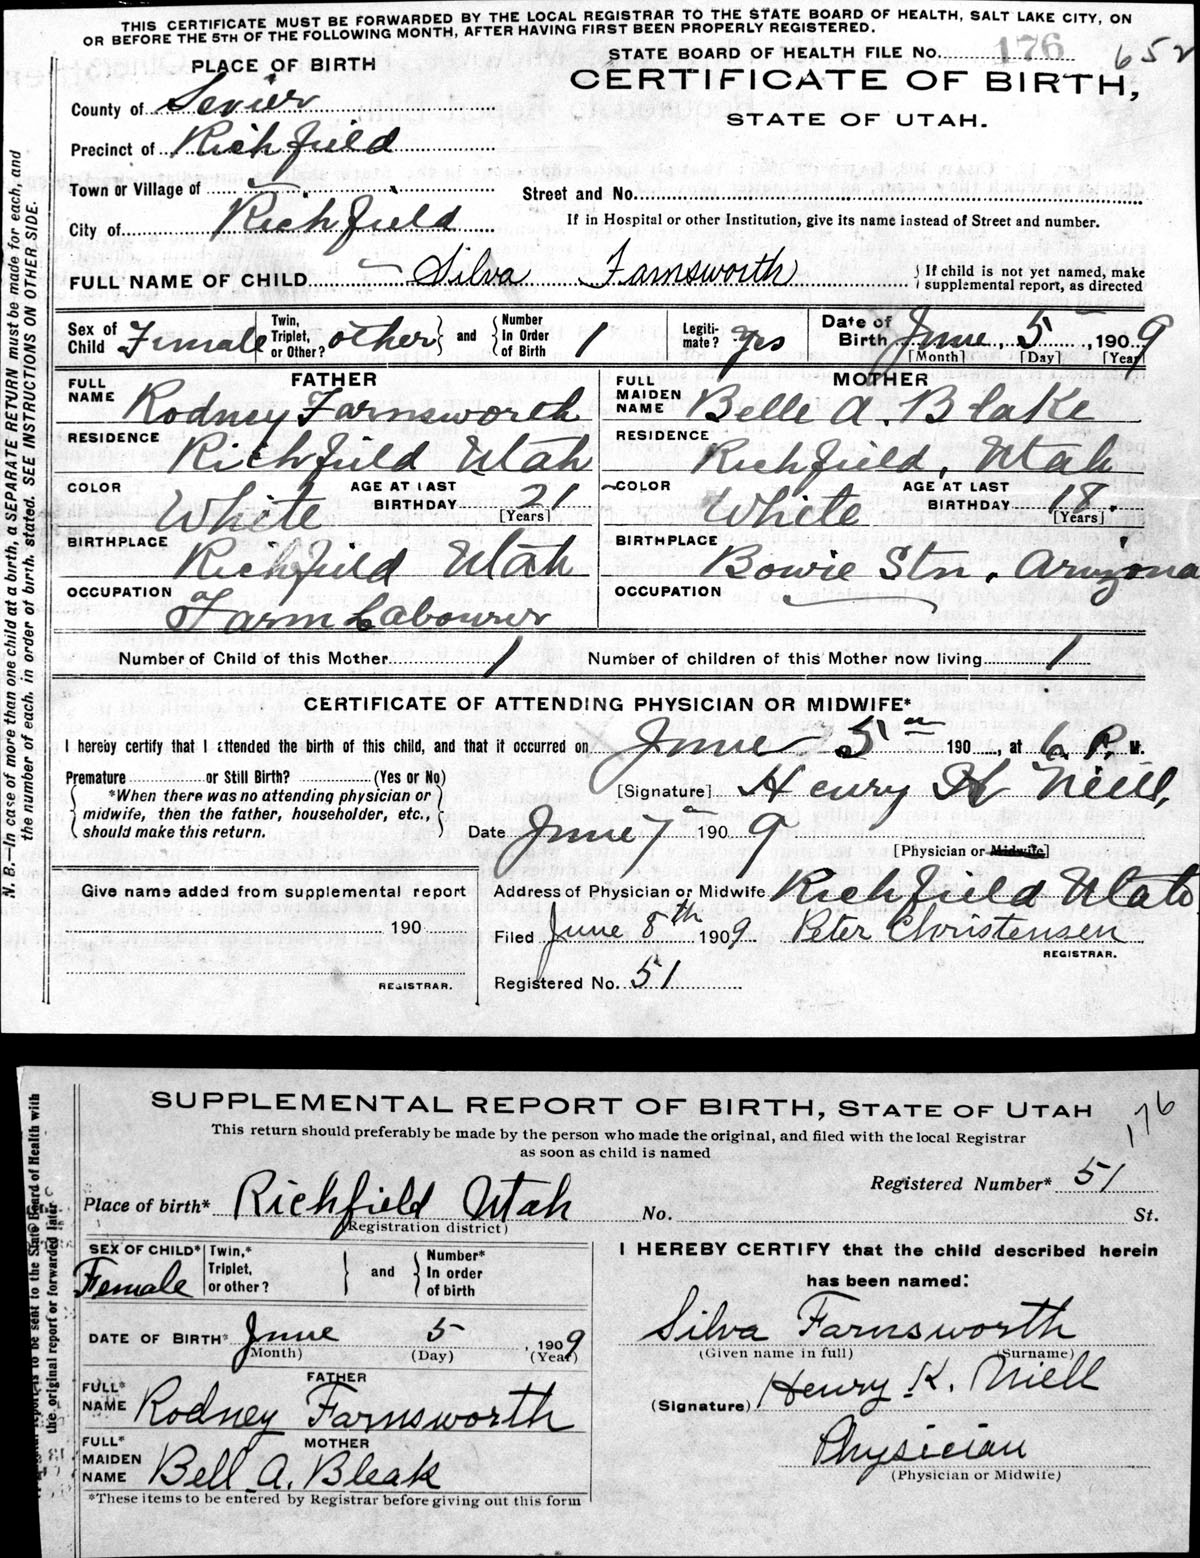 THIS CERTIFICATE MUST BE FORWARDED BY THE LOCAL REGISTRAR TO THE STATE BOARD OF HEALTH, SALT LAKE CITY, ON
OR BEFORE THE 5TH OF THE FOLLOWING MONTH, AFTER HAVING FIRST BEEN PROPERLY REGISTERED.
STATE BOARD OF HEALTH FILE No. 176 652
PLACE OF BIRTH
CERTIFICATE OF BIRTH,
STATE OF UTAH.
County of Sevier
Precinct of Richfield
Town or Village of
Street and No.
City of Richfield
If in Hospital or other Institution, give its name instead of Street and number.
FULL NAME OF CHILD Silva Farnsworth
{ If child is not yet named, make
supplemental report, as directed
Sex of Child Female
Twin, Triplet, or Other? other } and { Number In Order of Birth 1
Legiti-mate? yes
Date of Birth June 5, 1909
[Month] [Day] [Year]
FATHER
FULL NAME Rodney Farnsworth
RESIDENCE Richfield Utah
COLOR White AGE AT LAST BIRTHDAY 21
[Years]
BIRTHPLACE Richfield Utah
OCCUPATION Farm Labourer
MOTHER
FULL MAIDEN NAME Belle A. Blake
RESIDENCE Richfield, Utah
COLOR White AGE AT LAST BIRTHDAY 18.
[Years]
BIRTHPLACE Bowie Stn. Arizona
OCCUPATION
Number of Child of this Mother 1 Number of children of this Mother now living 1
CERTIFICATE OF ATTENDING PHYSICIAN OR MIDWIFE*
I hereby certify that I attended the birth of this child, and that it occurred on June 5 190, at 6 P. M.
Premature or Still Birth? (Yes or No)
*When there was no attending physician or
midwife, then the father, householder, etc.,
should make this return.
[Signature] Henry K Niell,
Date June 7 1909
[Physician or Midwife]
Give name added from supplemental report
190
REGISTRAR.
Address of Physician or Midwife Richfield Utah
Filed June 8th 1909 Peter Christensen
REGISTRAR.
Registered No. 51
N. B.—In case of more than one child at a birth, a SEPARATE RETURN must be made for each, and
the number of each, in order of birth, stated. SEE INSTRUCTIONS ON OTHER SIDE.
SUPPLEMENTAL REPORT OF BIRTH, STATE OF UTAH
176
This return should preferably be made by the person who made the original, and filed with the local Registrar
as soon as child is named
Registered Number* 51
Place of birth* Richfield Utah No. St.
(Registration district)
SEX OF CHILD* Female
Twin,* Triplet, or other? } and { Number* In order of birth
DATE OF BIRTH* June 5, 1909
(Month) (Day) (Year)
FATHER
FULL* NAME Rodney Farnsworth
MOTHER
FULL* MAIDEN NAME Bell A. Bleak
*These items to be entered by Registrar before giving out this form
I HEREBY CERTIFY that the child described herein
has been named:
Silva Farnsworth
(Given name in full) (Surname)
(Signature) Henry K. Niell
Physician
(Physician or Midwife)
is to be sent to the State Board of Health with
the original report or forwarded later